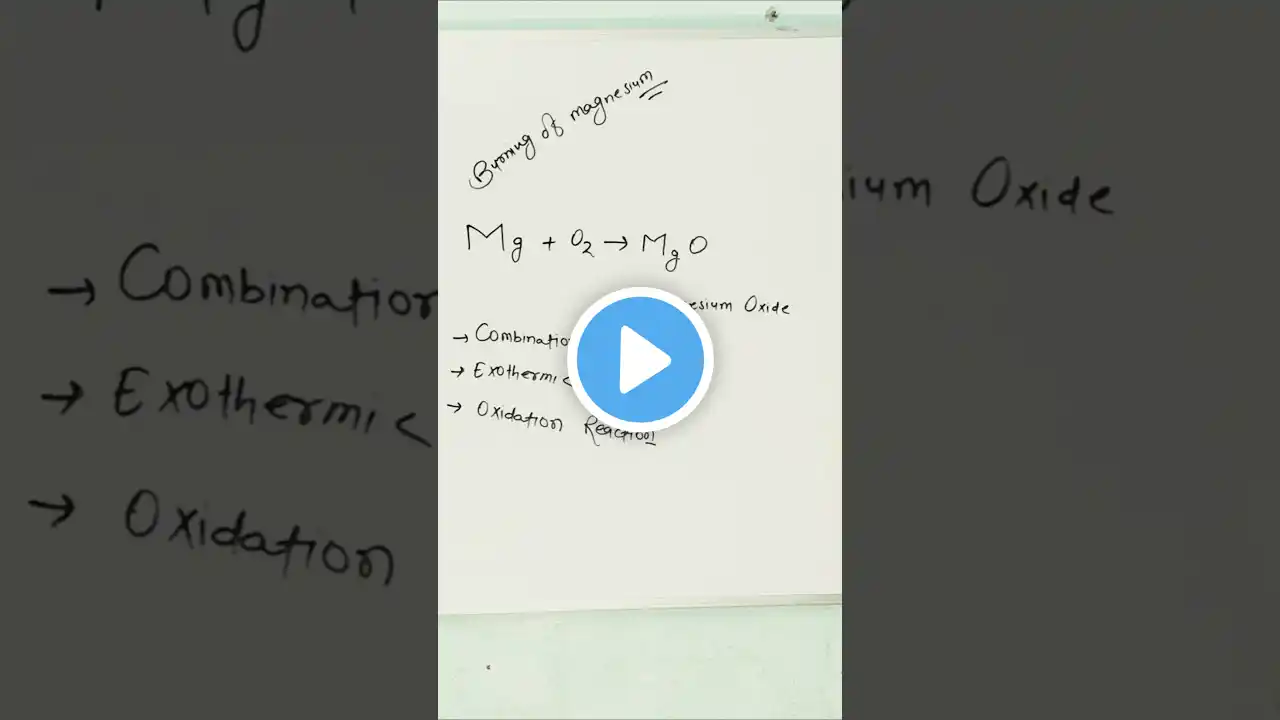 Burning of magnesium
Mg + O2 → MgO
Oxide
→ Combination
→ Exothermic
→ Oxidation Reaction